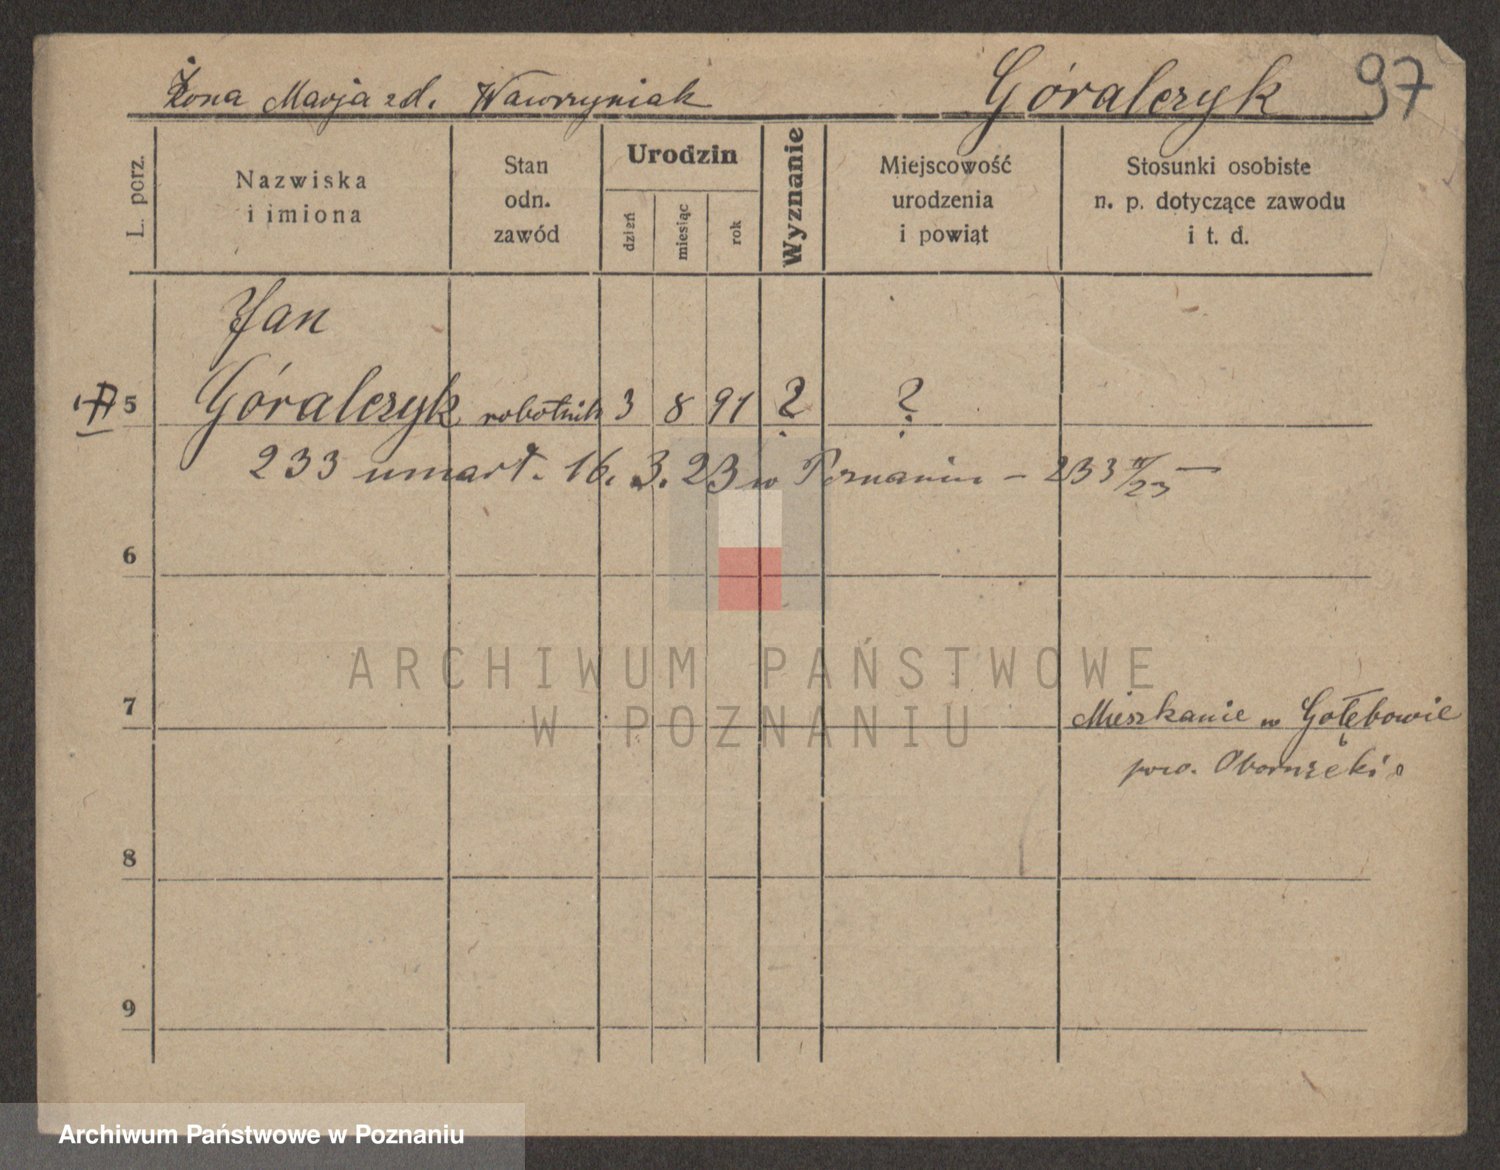 Żona Marja zd. Wawrzyniak Góralczyk 97
L. porz.
Nazwiska
i imiona
Stan
odn.
zawód
Urodzin
dzień
miesiąc
rok
Wyznanie
Miejscowość
urodzenia
i powiąt
Stosunki osobiste
n. p. dotyczące zawodu
i t. d.
Jan
5 Góralczyk robotnik 3 8 91 ? ?
233 umarł. 16. 3. 23 w Poznaniu – 233
6
ARCHIWUM PAŃSTWOWE
W POZNANIU
7 Mieszkanie w Gołębowie
pow. Obornicki
8
9
Archiwum Państwowe w Poznaniu